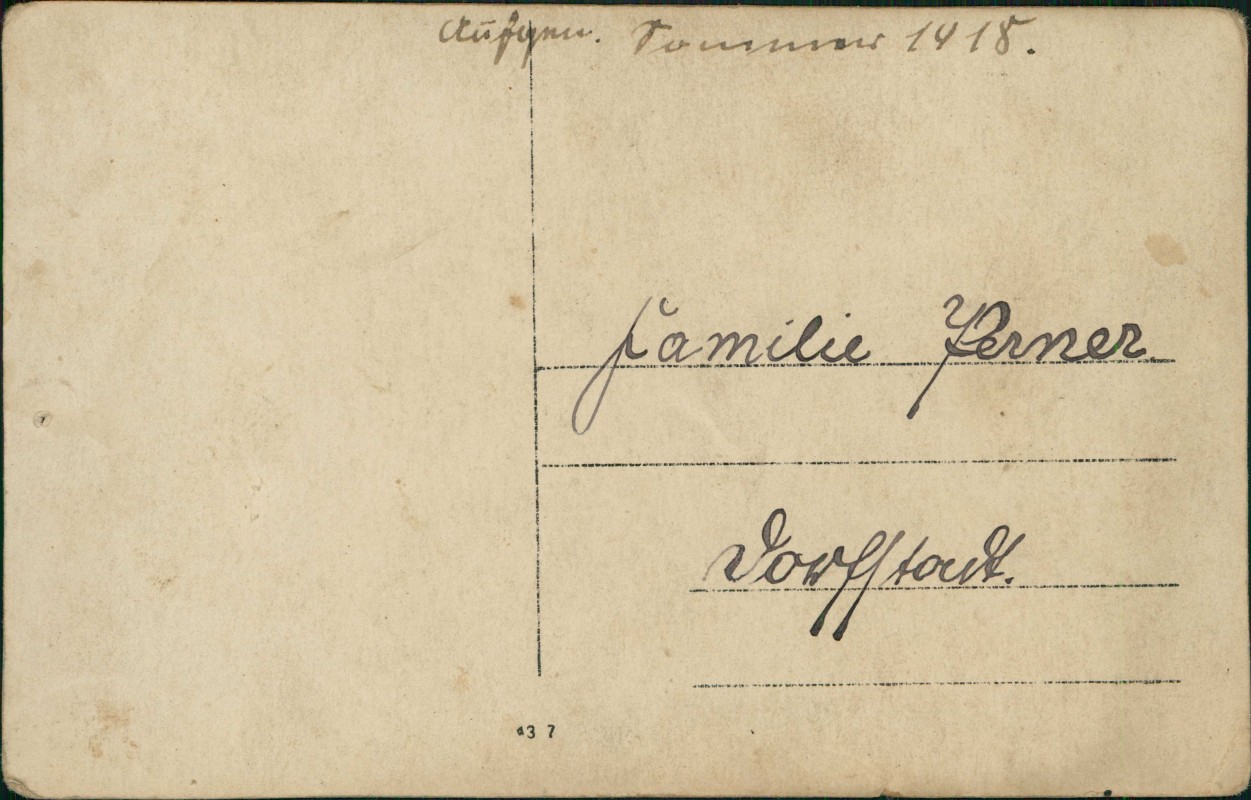 Aufgen. Sommer 1918.
Familie Perner
Dorfstadt.
37